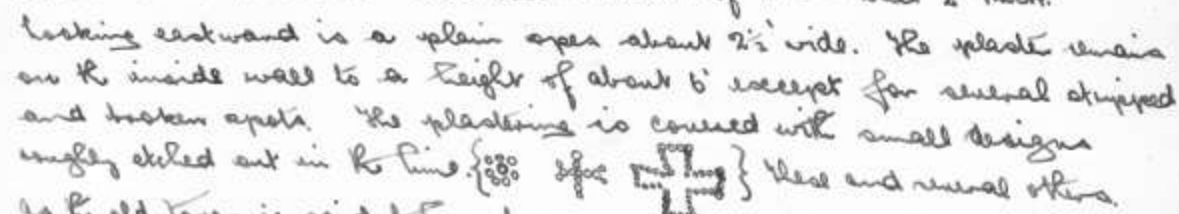 looking eastward is a plain opes about 2½' wide. The plaster remains
on the inside wall to a height of about 6' except for several stripped
and broken spots. The plastering is covered with small designs
roughly etched out in the lime. { } These and several others.